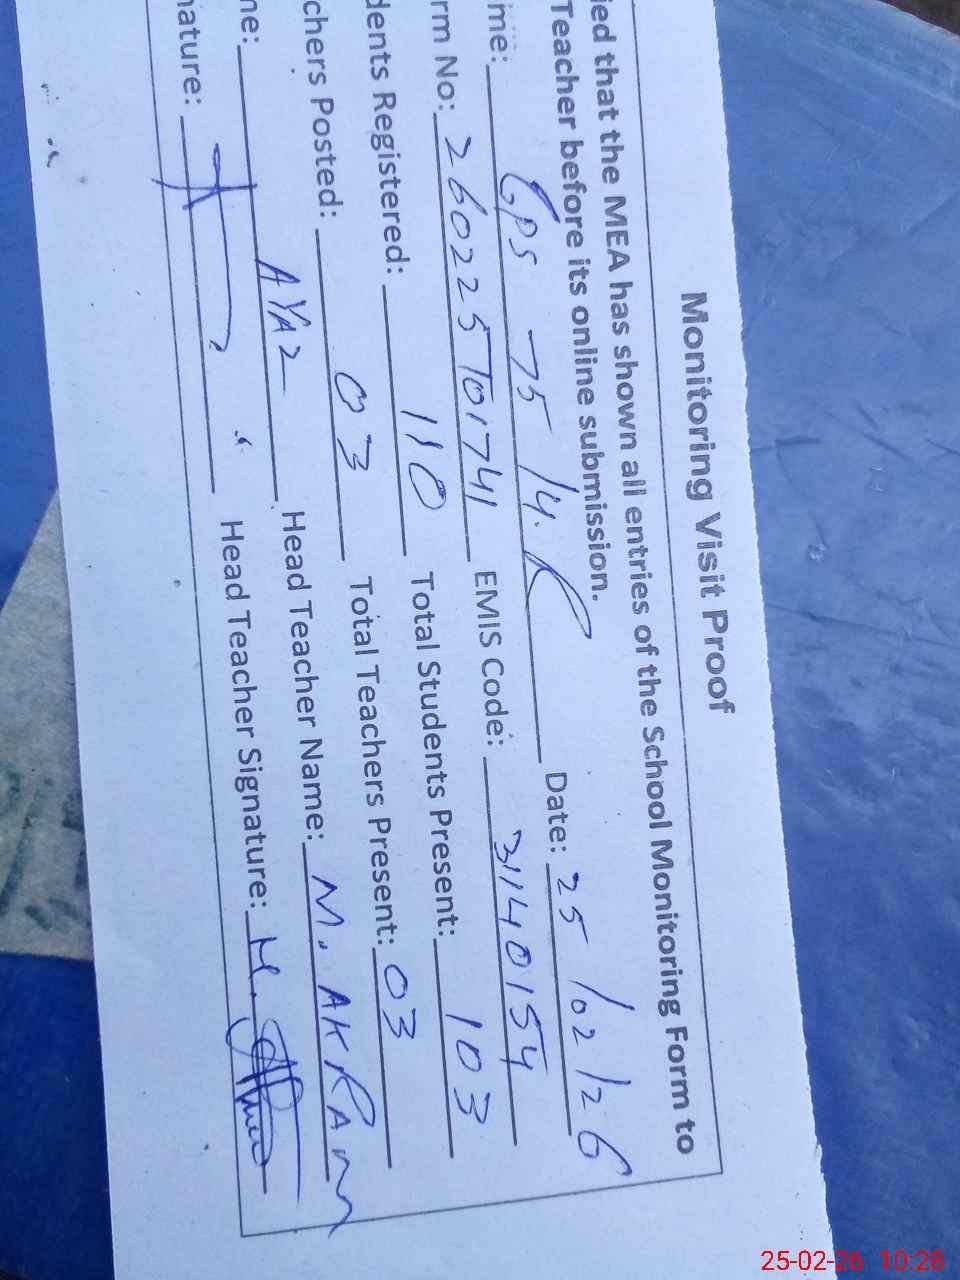 Monitoring Visit Proof
ied that the MEA has shown all entries of the School Monitoring Form to
Teacher before its online submission.
me: GPS 75/4.R Date: 25/02/26
rm No: 260225701741 EMIS Code: 31140154
dents Registered: 110 Total Students Present: 103
chers Posted: 03 Total Teachers Present: 03
ne: AYAZ Head Teacher Name: M. AKRAM
nature: Head Teacher Signature: M.
25-02-26 10:28